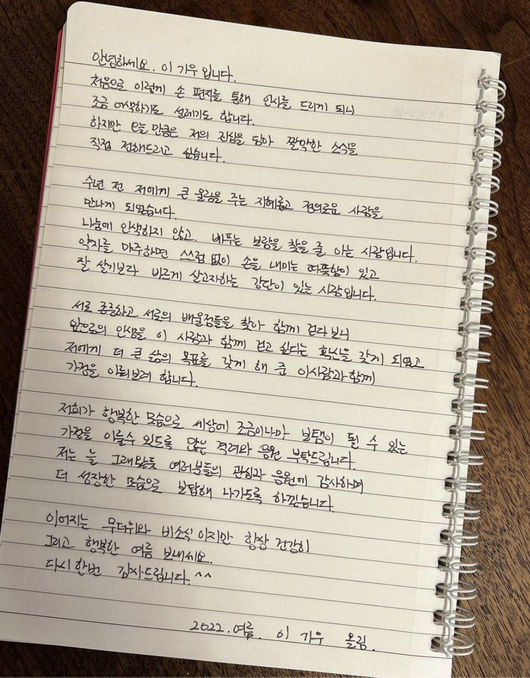 안녕하세요. 이 가우 입니다.
처음으로 이렇게 손 편지를 통해 인사를 드리게 되니
조금 어색하기도 설레기도 합니다.
하지만 오늘 만큼은 저의 진심을 담아 깜짝한 소식을
직접 전해드리고 싶습니다.
수년 전 저에게 큰 울림을 주는 지혜롭고 정의로운 사람을
만나게 되었습니다.
나눔에 인색하지 않고, 베푸는 보람을 찾을 줄 아는 사람입니다.
약자를 마주하면 스스럼 없이 손을 내미는 따뜻함이 있고
잘 살기보다 바르게 살고자하는 강단이 있는 사람입니다.
서로 존중하고 서로의 배울점들을 찾아 함께 걷다보니
앞으로의 인생을 이 사람과 함께 걷고 싶다는 확신을 갖게 되었고
저에게 더 큰 삶의 목표를 갖게 해 준 이사람과 함께
가정을 이뤄보려 합니다.
저희가 행복한 모습으로 세상에 조금이나마 보탬이 될 수 있는
가정을 이룰수 있도록 많은 격려와 응원 부탁드립니다.
저는 늘 그래왔듯 여러분들의 관심과 응원에 감사하며
더 성장한 모습으로 보답해 나가도록 하겠습니다.
이어지는 무더위와 비소식 이지만 항상 건강히
그리고 행복한 여름 보내세요.
다시 한번 감사드립니다.^^
2022.여름. 이 가우 올림.